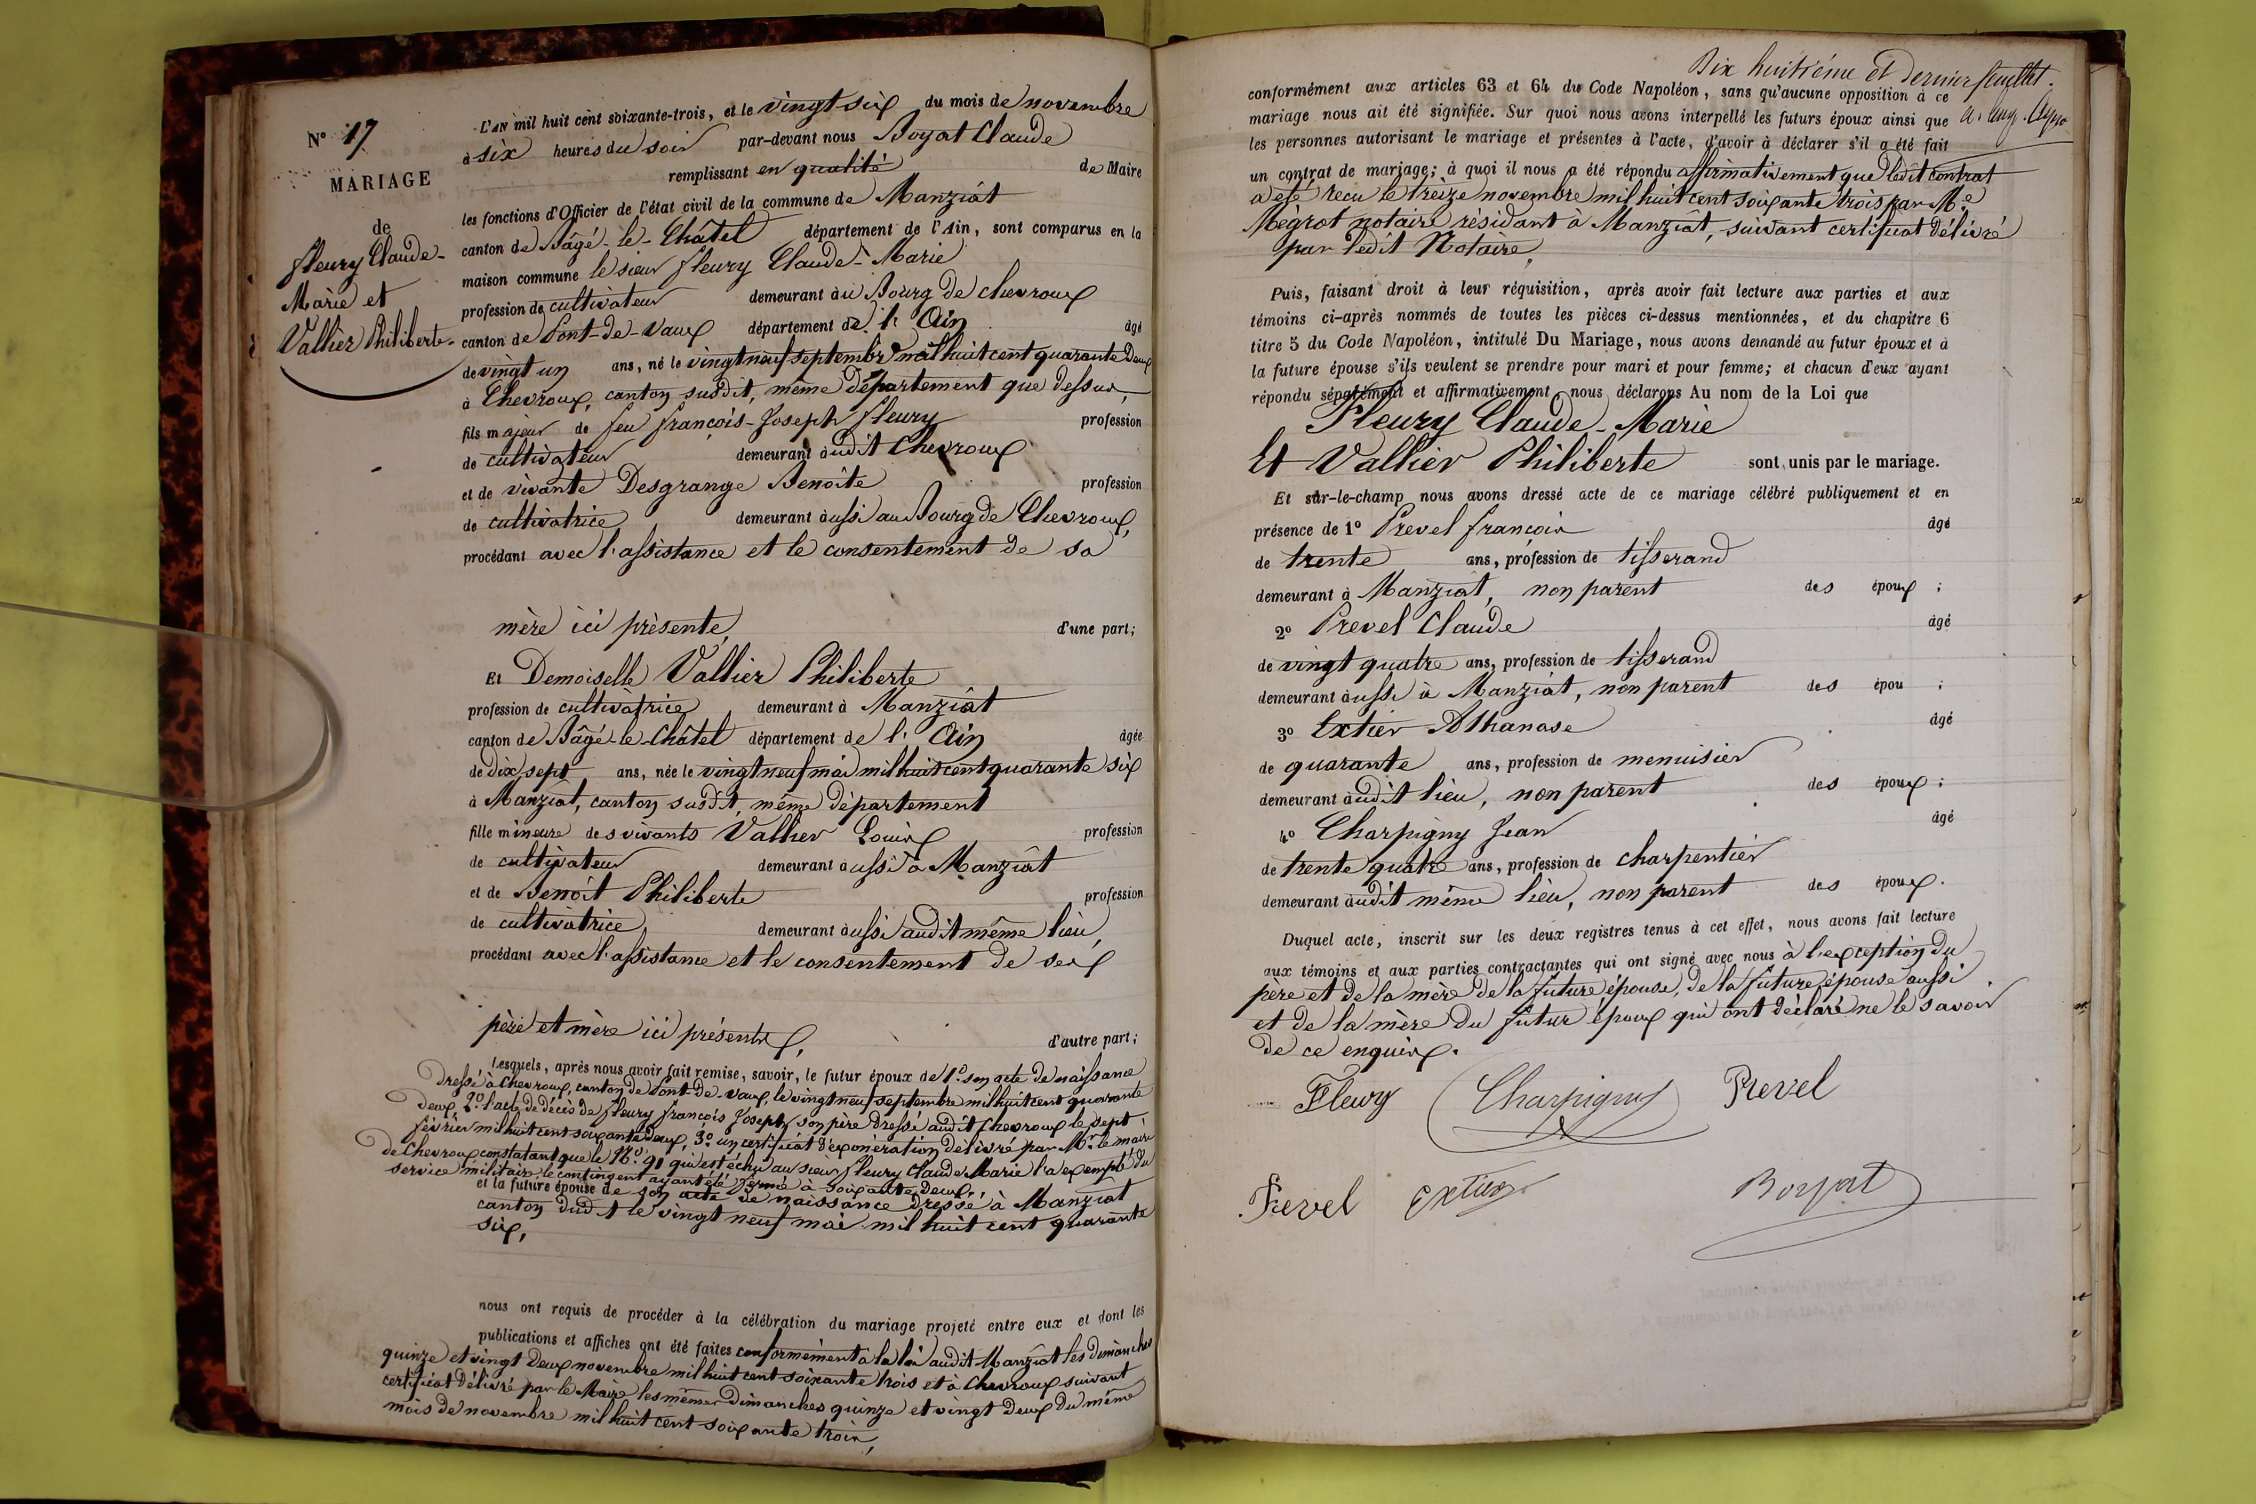 N° 17
MARIAGE
de
Fleury Claude-
Marie et
Vallier Philiberte.
L'AN mil huit cent soixante-trois, et le vingt-six du mois de novembre
à six heures du soir par-devant nous Boyat Claude
remplissant en qualité de Maire
les fonctions d'Officier de l'état civil de la commune de Manziat
canton de Bâgé-le-Châtel département de l'Ain, sont comparus en la
maison commune le sieur Fleury Claude-Marie
profession de cultivateur demeurant au Bourg de Chevroux
canton de Pont-de-Vaux département de l'Ain âgé
de vingt un ans, né le vingt neuf septembre mil huit cent quarante deux
à Chevroux, canton susdit, même département que dessus,
fils majeur de feu françois-Joseph fleury profession
de cultivateur demeurant audit Chevroux
et de vivante Desgrange Benoîte profession
de cultivatrice demeurant aussi au Bourg de Chevroux,
procédant avec l'assistance et le consentement de sa
mère ici présente, d'une part;
Et Demoiselle Vallier Philiberte
profession de cultivatrice demeurant à Manziat
canton de Bâgé-le-Châtel département de l'Ain âgée
de dix sept ans, née le vingt neuf mai mil huit cent quarante six
à Manziat, canton susdit, même département
fille mineure des vivants Vallier Louis profession
de cultivateur demeurant aussi à Manziat
et de Benoît Philiberte profession
de cultivatrice demeurant aussi audit même lieu,
procédant avec l'assistance et le consentement de ses
père et mère ici présents, d'autre part;
Lesquels, après nous avoir fait remise, savoir, le futur époux de 1° son acte de naissance
Dressé à Chevroux, canton de Pont-de-Vaux, le vingt neuf septembre mil huit cent quarante
deux, 2° l'acte de décès de fleury françois Joseph son père dressé audit Chevroux le sept
février mil huit cent soixante deux, 3° un certificat d'exonération délivré par Mr. le maire
de Chevroux constatant que le N° 91 qui est échu au sieur fleury Claude Marie l'a exempté du
service militaire, le contingent ayant été formé à soixante deux,
et la future épouse de son acte de naissance dressé à Manziat
canton dudit le vingt neuf mai mil huit cent quarante
six,
nous ont requis de procéder à la célébration du mariage projeté entre eux et dont les
publications et affiches ont été faites conformément à la loi audit Manziat les dimanches
quinze et vingt deux novembre mil huit cent soixante trois et à Chevroux suivant
certificat délivré par le Maire les mêmes dimanches quinze et vingt deux du même
mois de novembre mil huit cent soixante trois,
Dix huitième et dernier feuillet.
conformément aux articles 63 et 64 du Code Napoléon, sans qu'aucune opposition à ce
mariage nous ait été signifiée. Sur quoi nous avons interpellé les futurs époux ainsi que
les personnes autorisant le mariage et présentes à l'acte, d'avoir à déclarer s'il a été fait
un contrat de mariage; à quoi il nous a été répondu affirmativement que ledit contrat
a été reçu le treize novembre mil huit cent soixante trois par Me
Mégrot notaire résidant à Manziat, suivant certificat délivré
par ledit Notaire,
Puis, faisant droit à leur réquisition, après avoir fait lecture aux parties et aux
témoins ci-après nommés de toutes les pièces ci-dessus mentionnées, et du chapitre 6
titre 5 du Code Napoléon, intitulé Du Mariage, nous avons demandé au futur époux et à
la future épouse s'ils veulent se prendre pour mari et pour femme; et chacun d'eux ayant
répondu séparément et affirmativement, nous déclarons Au nom de la Loi que
Fleury Claude-Marie
Et Vallier Philiberte sont unis par le mariage.
Et sur-le-champ nous avons dressé acte de ce mariage célébré publiquement et en
présence de 1° Prevel françois âgé
de trente ans, profession de tisserand
demeurant à Manziat, non parent des époux ;
2° Prevel Claude âgé
de vingt quatre ans, profession de tisserand
demeurant aussi à Manziat, non parent des épou ;
3° Extier Athanase âgé
de quarante ans, profession de menuisier
demeurant audit lieu, non parent des époux ;
4° Charpigny Jean âgé
de trente quatre ans, profession de charpentier
demeurant audit même lieu, non parent des époux.
Duquel acte, inscrit sur les deux registres tenus à cet effet, nous avons fait lecture
aux témoins et aux parties contractantes qui ont signé avec nous à l'exception du
père et de la mère de la future épouse, de la future épouse aussi
et de la mère du futur époux qui ont déclaré ne le savoir
de ce enquis.
Fleury Charpigny Prevel
Prevel Extier Boyat